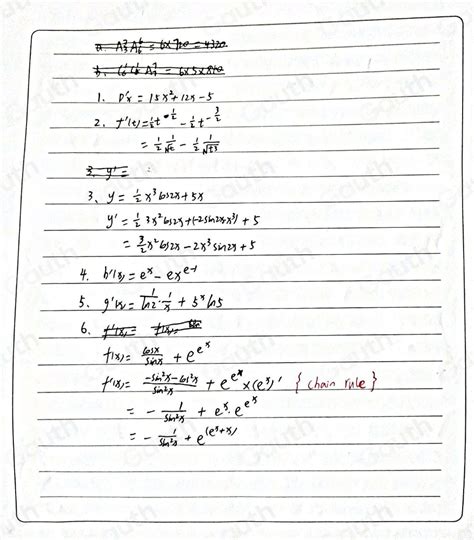 a. A₃³ A₆⁶ = 6×720 = 4320
b. C₆¹ C₅¹ A₇⁷ = 6×5×840
1. P'x = 15x²+12x-5
2. f'(t) = ½t^-½ - ½t^-3/2
= ½ 1/√t - ½ 1/√t³
3. y' =
3. y = ½x³cos2x+5x
y' = ½ 3x²cos2x+(-2sin2x·x³)+5
= 3/2x²cos2x-2x³sin2x+5
4. h'(x) = eˣ - ex^e-1
5. g'(x) = 1/ln2 · 1/x + 5ˣ ln5
6. f'(x) =
f(x) = cosx/sinx + e^eˣ
f'(x) = -sin²x-cos²x/sin²x + e^eˣ×(eˣ)' { chain rule }
= - 1/sin²x + eˣ·e^eˣ
= - 1/sin²x + e^(eˣ+x)